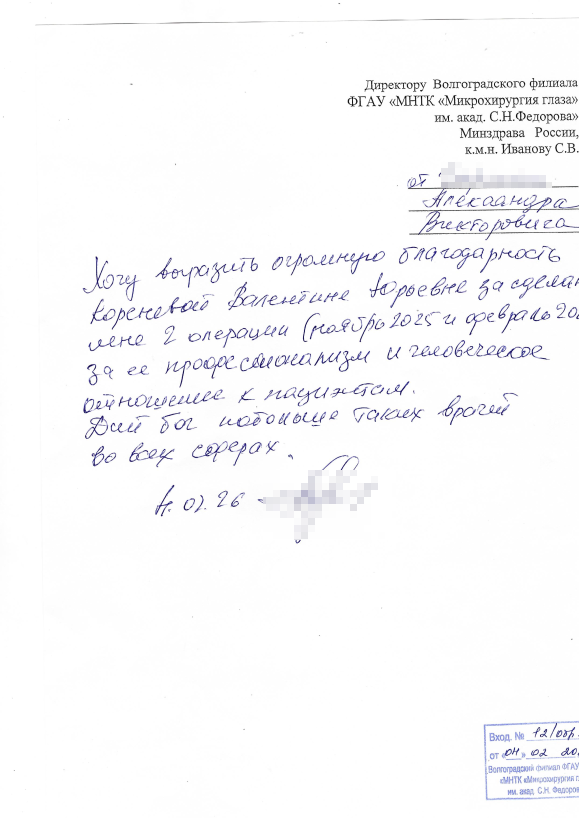 Директору Волгоградского филиала
ФГАУ «МНТК «Микрохирургия глаза»
им. акад. С.Н.Федорова»
Минздрава России,
к.м.н. Иванову С.В.
от
Александра
Викторовича
Хочу выразить огромную благодарность
Кореневой Валентине Юрьевне за сделан
мне 2 операции (ноябрь 2025 и февраль 20
за ее профессионализм и человеческое
отношение к пациентам.
Дай бог побольше таких врачей
во всех сферах.
02. 26
Вход. № 12/обр.
от «04» 02 20
Волгоградский филиал ФГАУ
«МНТК «Микрохирургия гл
им. акад. С.Н. Федоров